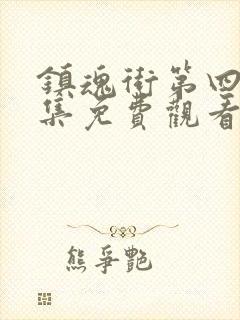 鎮魂街第四
集免費觀看
熊爭艷